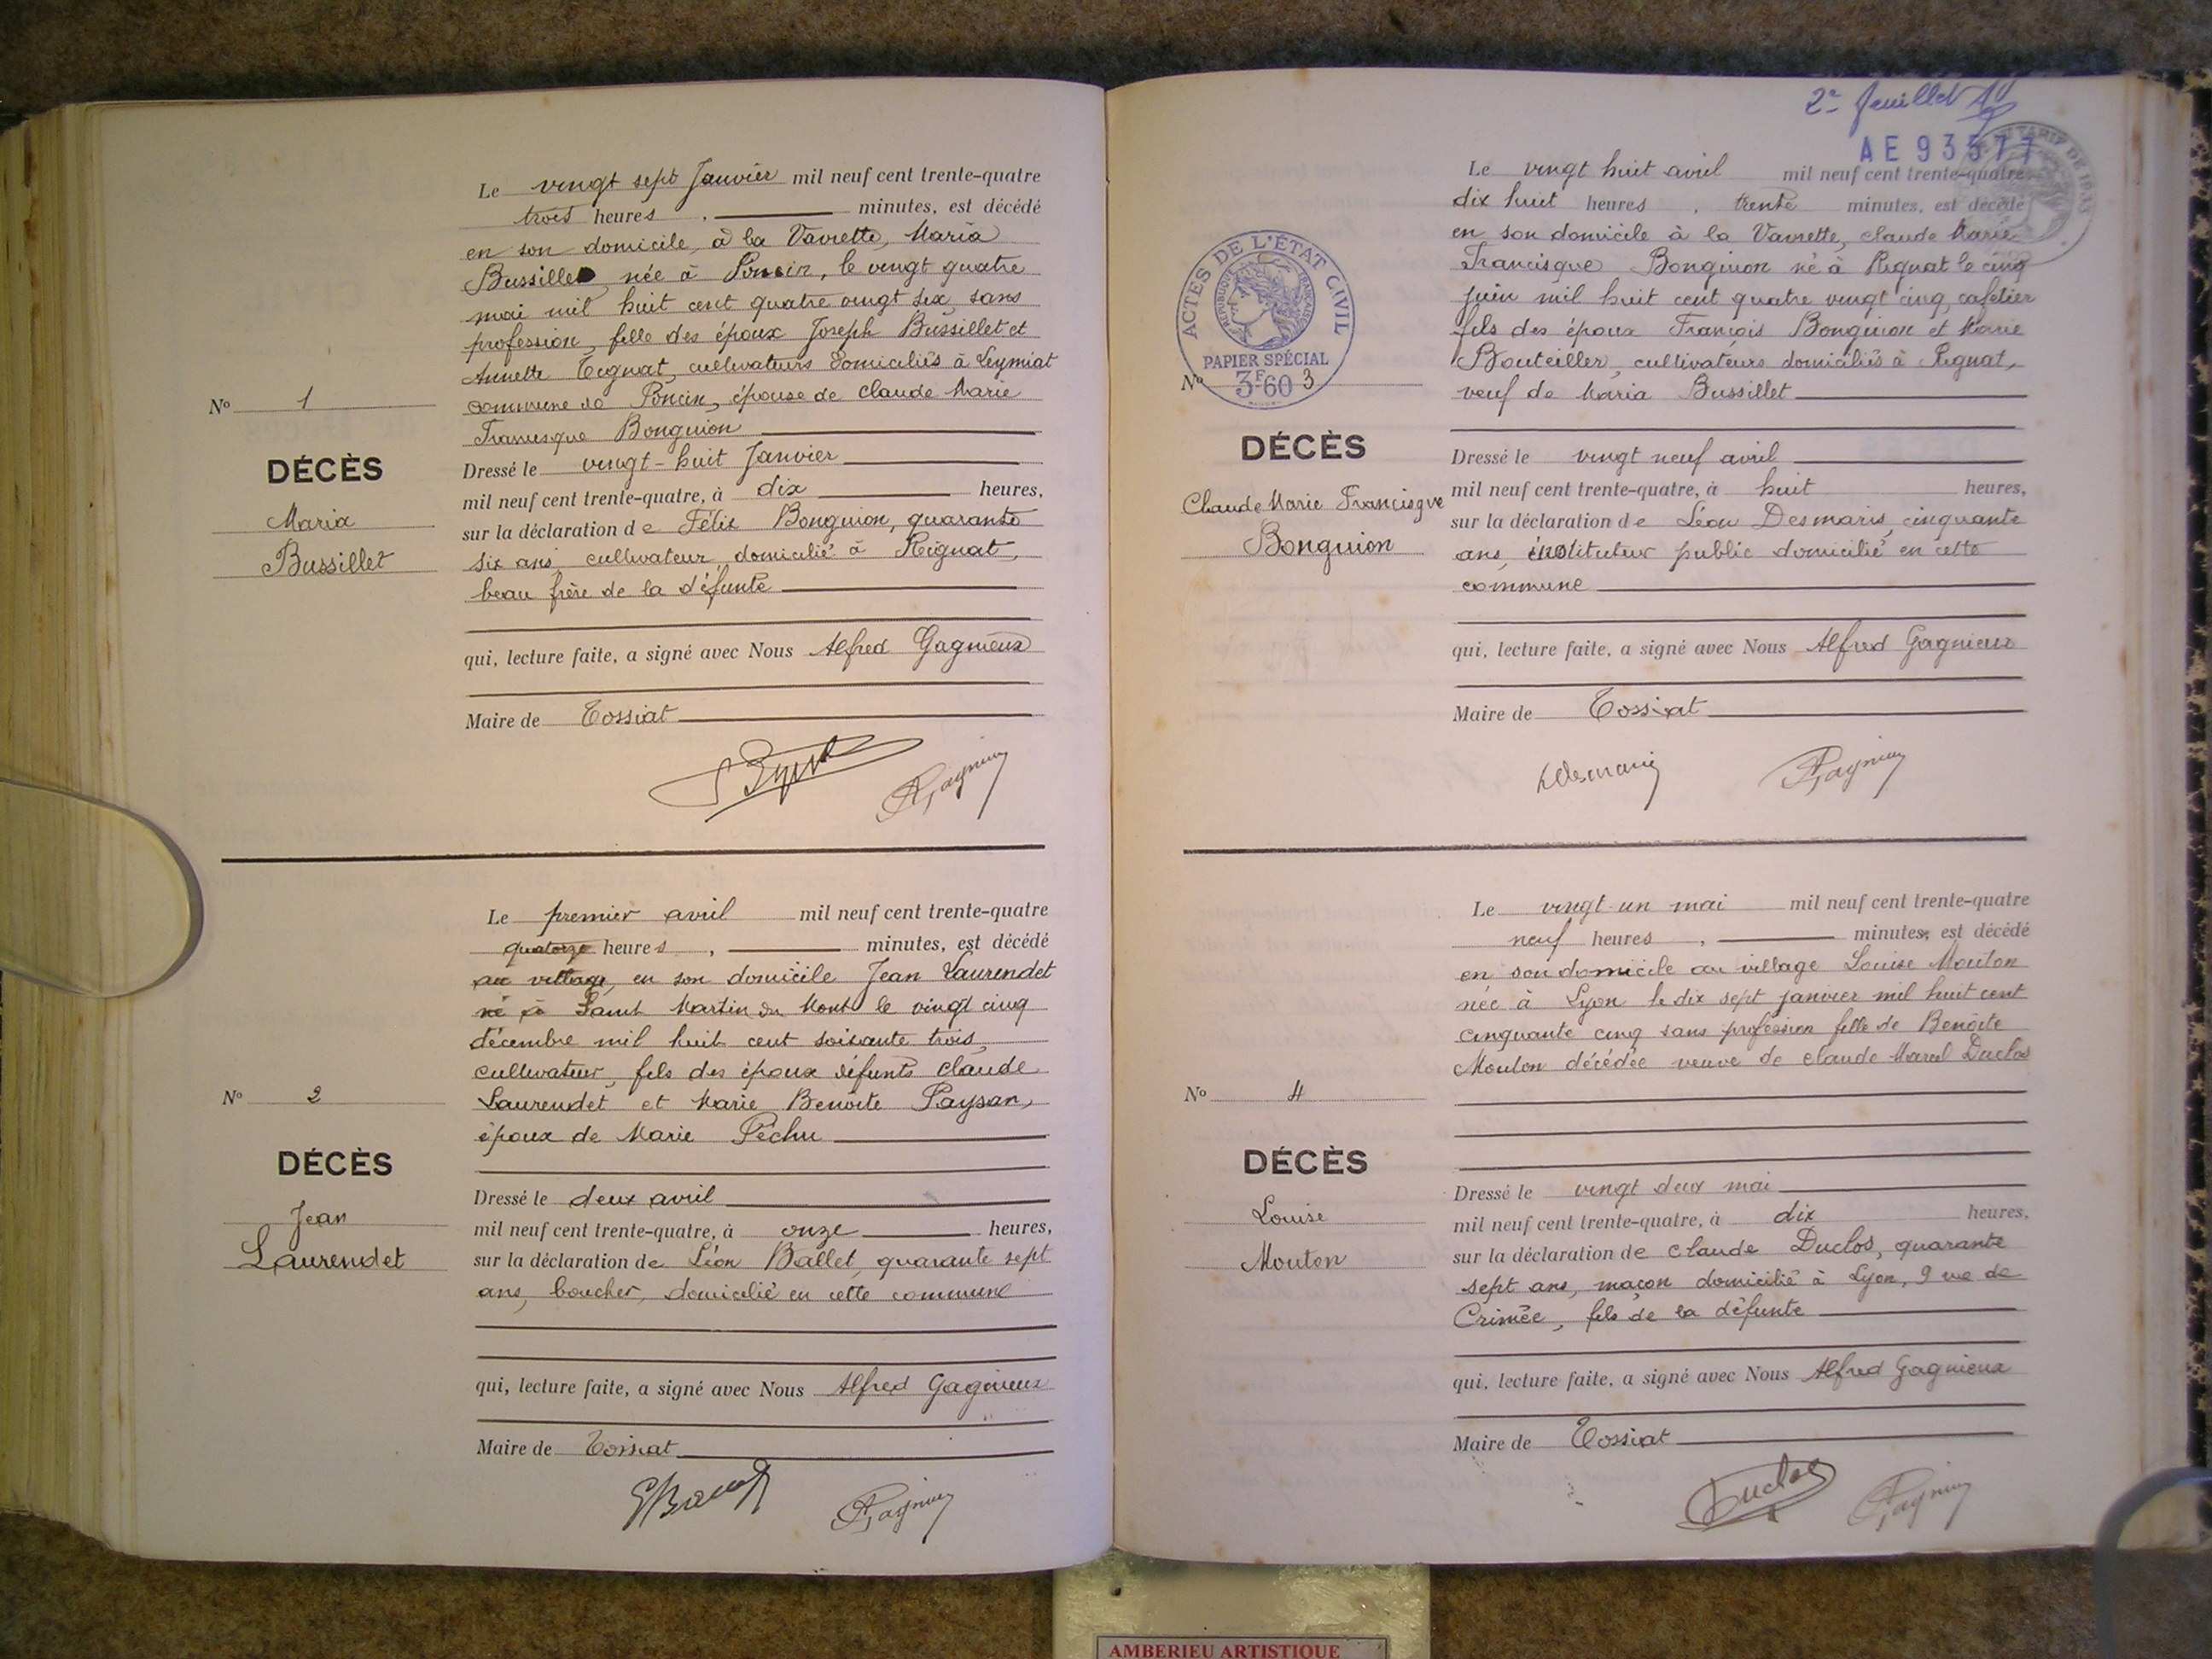 Le vingt sept Janvier mil neuf cent trente-quatre
trois heures , minutes, est décédé
en son domicile, à la Vavrette, Maria
Bussillet née à Poncin, le vingt quatre
mai mil huit cent quatre vingt six, sans
profession, fille des époux Joseph Bussillet et
Annette Tignat, cultivateurs domiciliés à Leymiat
commune de Poncin, épouse de Claude Marie
Francisque Bonguion
Nº 1
DÉCÈS
Maria
Bussillet
Dressé le vingt-huit Janvier
mil neuf cent trente-quatre, à dix heures,
sur la déclaration de Félix Bonguion, quarante
six ans, cultivateur, domicilié à Rignat,
beau frère de la défunte
qui, lecture faite, a signé avec Nous Alfred Gagnieux
Maire de Tossiat
Gagnieux
Le premier avril mil neuf cent trente-quatre
quatorze heures , minutes, est décédé
au village, en son domicile Jean Laurendet
né à Saint Martin du Mont le vingt cinq
décembre mil huit cent soixante trois,
cultivateur, fils des époux défunts Claude
Laurendet et Marie Benoite Paysan,
époux de Marie Péchu
Nº 2
DÉCÈS
Jean
Laurendet
Dressé le deux avril
mil neuf cent trente-quatre, à onze heures,
sur la déclaration de Léon Ballet, quarante sept
ans, boucher, domicilié en cette commune
qui, lecture faite, a signé avec Nous Alfred Gagnieux
Maire de Tossiat
Gagnieux
2e feuillet
AE 93577
Le vingt huit avril mil neuf cent trente-quatre
dix huit heures , trente minutes, est décédé
en son domicile à la Vavrette, Claude Marie
Francisque Bonguion né à Rignat le cinq
juin mil huit cent quatre vingt cinq, cafetier
fils des époux François Bonguion et Marie
Bouteiller, cultivateurs domiciliés à Rignat,
veuf de Maria Bussillet
ACTES DE L'ÉTAT CIVIL
RÉPUBLIQUE FRANÇAISE
PAPIER SPÉCIAL
3F60
Nº 3
DÉCÈS
Claude Marie Francisque
Bonguion
Dressé le vingt neuf avril
mil neuf cent trente-quatre, à huit heures,
sur la déclaration de Léon Desmaris, cinquante
ans, instituteur public domicilié en cette
commune
qui, lecture faite, a signé avec Nous Alfred Gagnieux
Maire de Tossiat
LDesmaris Gagnieux
Le vingt-un mai mil neuf cent trente-quatre
neuf heures , minutes, est décédé
en son domicile au village Louise Mouton
née à Lyon le dix sept janvier mil huit cent
cinquante cinq sans profession fille de Benoite
Mouton décédée veuve de Claude Marcel Duclos
Nº 4
DÉCÈS
Louise
Mouton
Dressé le vingt deux mai
mil neuf cent trente-quatre, à dix heures,
sur la déclaration de Claude Duclos, quarante
sept ans, maçon domicilié à Lyon, 9 rue de
Crimée, fils de la défunte
qui, lecture faite, a signé avec Nous Alfred Gagnieux
Maire de Tossiat
Duclos Gagnieux
AMBERIEU ARTISTIQUE